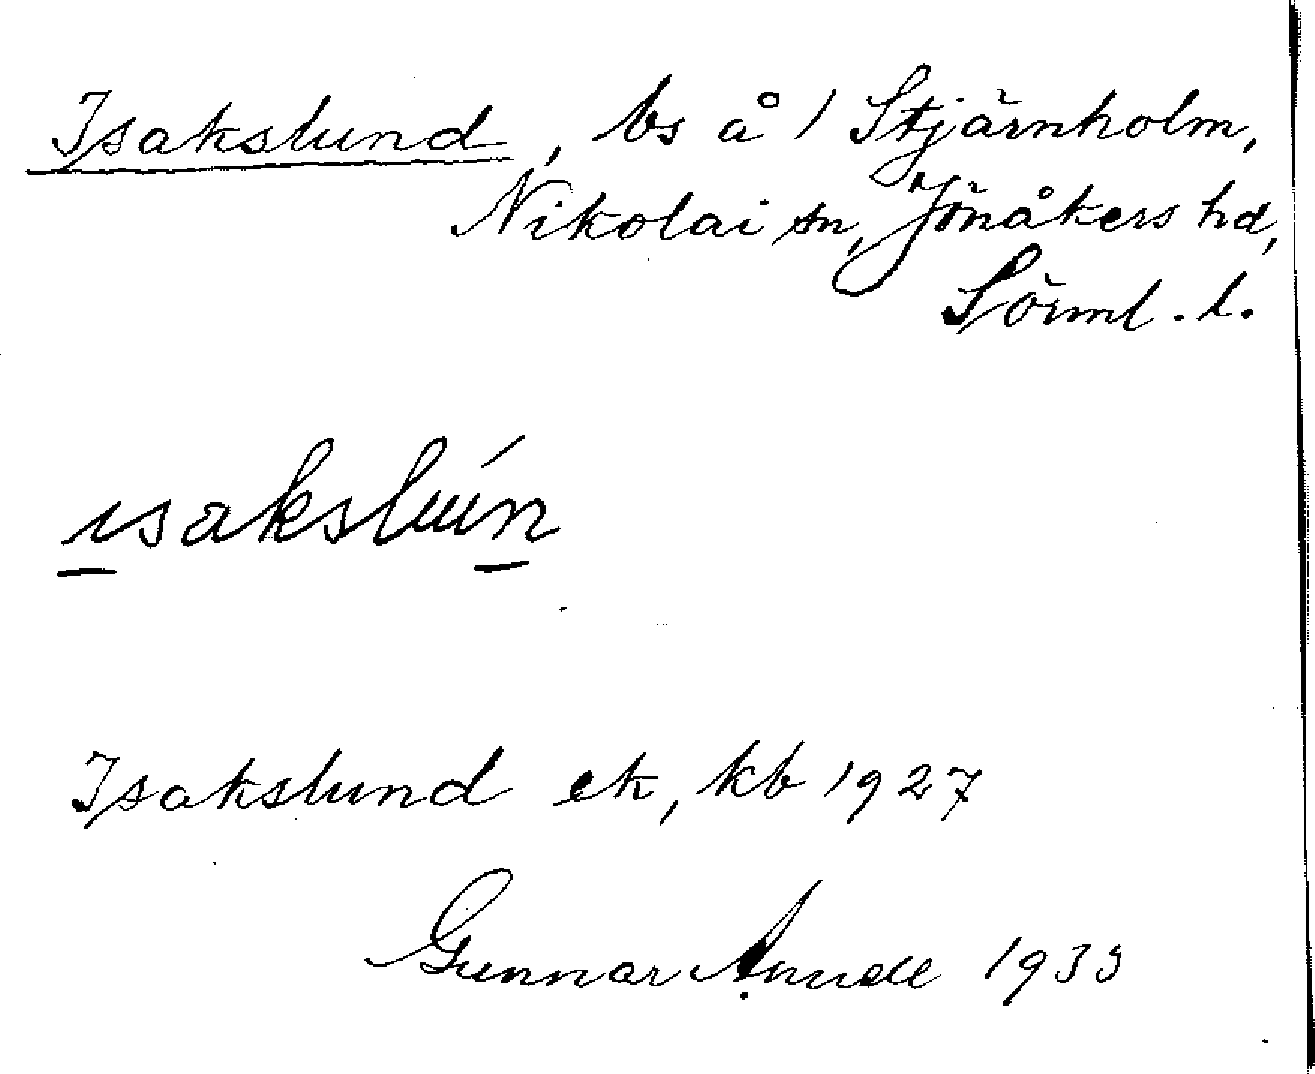 Isakslund, bs å 1 Stjärnholm,
Nikolai sn, Jönåkers hd,
Sörml. l.
ısakslún
Isakslund ek, kb 1927
Gunnar 1933